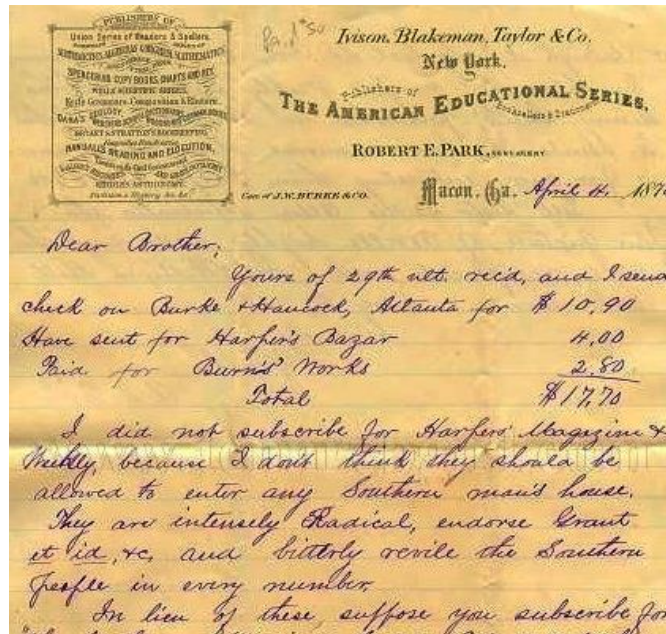 PUBLISHERS OF
Union Series of Readers & Spellers.
SPENCERIAN COPY BOOKS, CHARTS AND KEY,
WELLS SCIENTIFIC SERIES,
Kerl's Grammars, Composition & Rhetoric
DANA'S GEOLOGY
BRYANT & STRATTON'S BOOKKEEPING
MANUALS READING AND ELOCUTION,
Pa.d $50
Ivison, Blakeman, Taylor & Co.
New York,
Publishers of
THE AMERICAN EDUCATIONAL SERIES,
Booksellers & Stationers
ROBERT E. PARK, GEN'L AGENT
Care of J.W. BURKE & CO.
Macon, Ga. April 4. 187
Dear Brother,
Yours of 29th ult. rec'd, and I send
check on Burke & Hancock, Atlanta for $10.90
Have sent for Harper's Bazar 4.00
Paid for Burns' Works 2.80
Total $17.70
I did not subscribe for Harpers' Magazine &
Weekly, because I don't think they should be
allowed to enter any Southern man's house.
They are intensely Radical, endorse Grant
et id, &c, and bitterly revile the Southern
people in every number.
In lieu of these, suppose you subscribe for